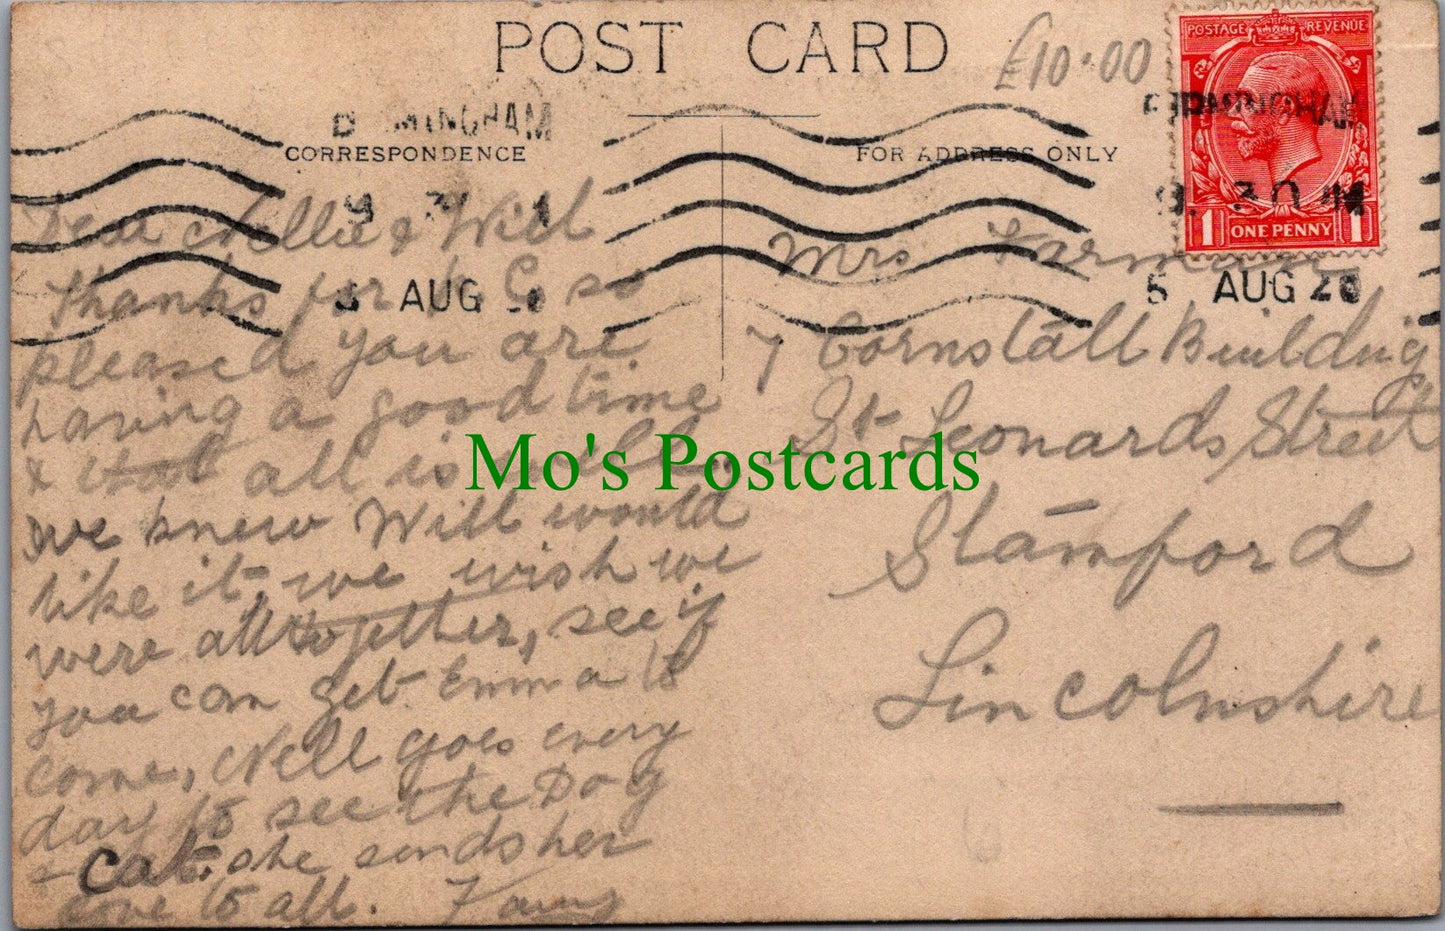 POST CARD
£10.00
POSTAGE REVENUE
1 ONE PENNY 1
BIRMINGHAM
9. 30 AM
5 AUG 20
CORRESPONDENCE
FOR ADDRESS ONLY
Dear Nellie & Will
Thanks for P C, so
pleased you are
having a good time
& that all is well.
we knew Will would
like it, we wish we
were all together, see if
you can get Emma to
come, Nell goes every
day to see the Dog
& cat. she sends her
love to all.
Mrs
7 Cornstall Building
St Leonards Street
Stamford
Lincolnshire
Mo's Postcards